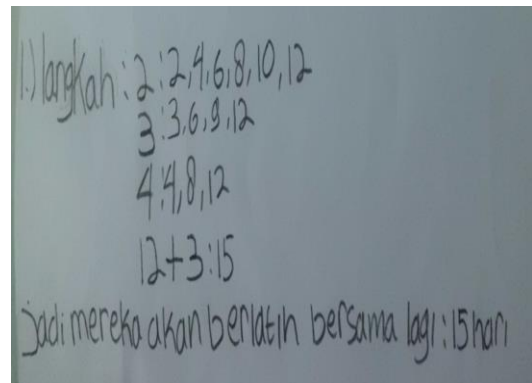 1.) langkah : 2 : 2,4,6,8,10,12
3 : 3,6,9,12
4 : 4,8,12
12+3 : 15
Jadi mereka akan berlatih bersama lagi : 15 hari